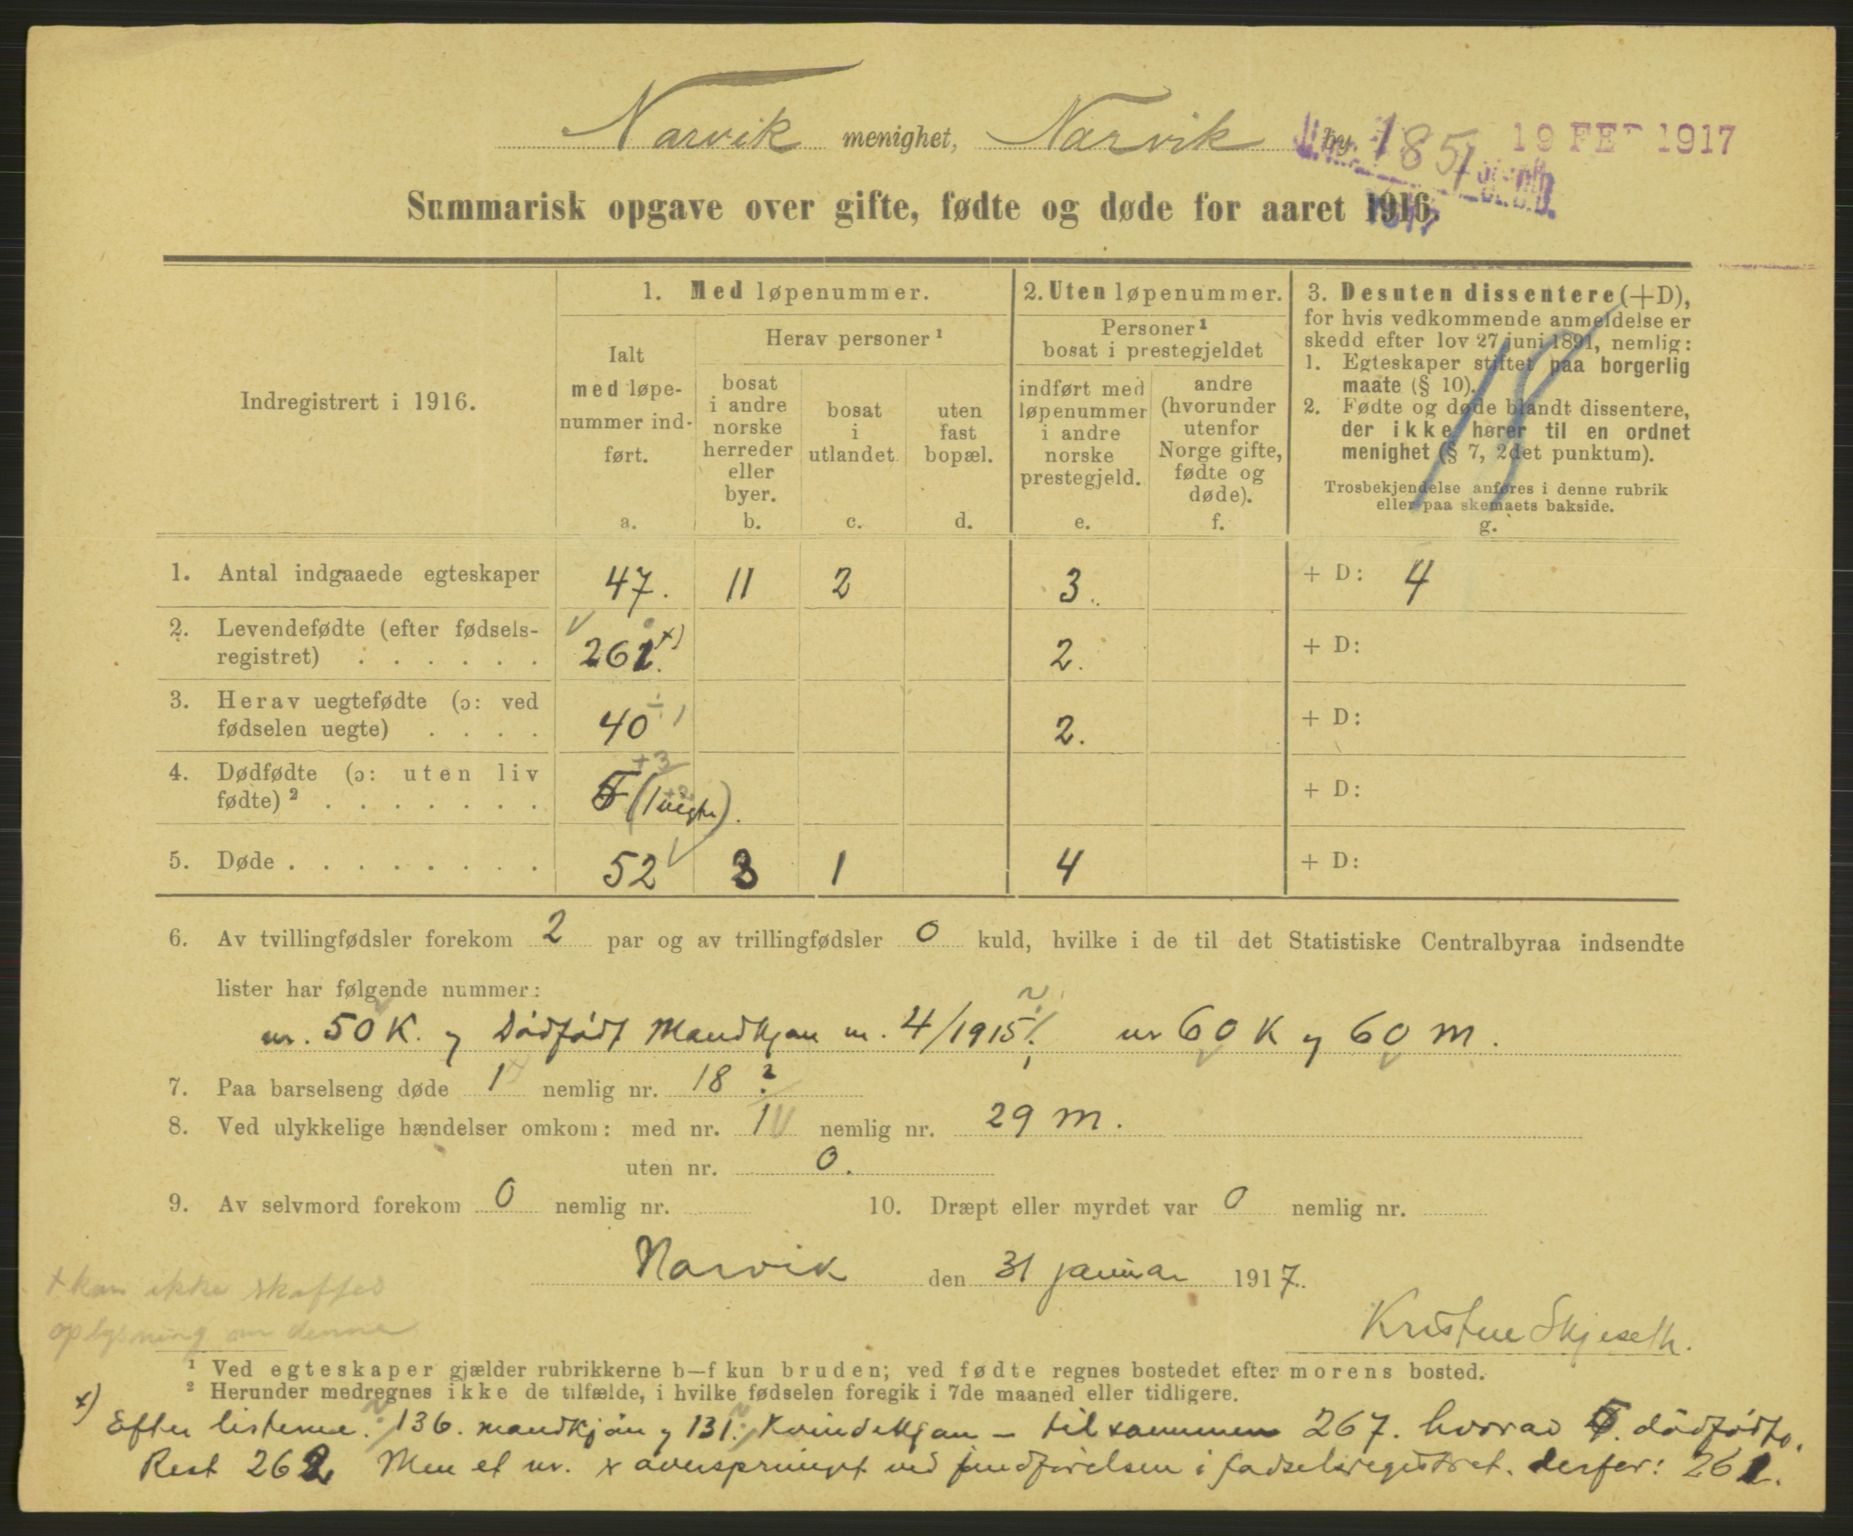 Narvik menighet, Narvik by. 1851 19 FEB 1917
Summarisk opgave over gifte, fødte og døde for aaret 1916.
Indregistrert i 1916.
1. Med løpenummer.
Ialt med løpenummer indført.
a.
Herav personer ¹
bosat i andre norske herreder eller byer.
b.
bosat i utlandet
c.
uten fast bopæl.
d.
2. Uten løpenummer.
Personer ¹ bosat i prestegjeldet
indført med løpenummer i andre norske prestegjeld.
e.
andre (hvorunder utenfor Norge gifte, fødte og døde).
f.
3. Desuten dissentere (+D),
for hvis vedkommende anmeldelse er
skedd efter lov 27 juni 1891, nemlig:
1. Egteskaper stiftet paa borgerlig
maate (§ 10).
2. Fødte og døde blandt dissentere,
der ikke hører til en ordnet
menighet (§ 7, 2det punktum).
Trosbekjendelse anføres i denne rubrik
eller paa skemaets bakside.
g.
18
1. Antal indgaaede egteskaper 47. 11 2 3. + D: 4
2. Levendefødte (efter fødsels-
registret) . . . . . . 261. x) 2. + D:
3. Herav uegtefødte (ɔ: ved
fødselen uegte) . . . . 40 ÷ 1 2. + D:
4. Dødfødte (ɔ: uten liv
fødte) ² . . . . . . . 5 +3 (1 uegte). + D:
5. Døde . . . . . . . . 52 3 1 4 + D:
6. Av tvillingfødsler forekom 2 par og av trillingfødsler 0 kuld, hvilke i de til det Statistiske Centralbyraa indsendte
lister har følgende nummer:
nr. 50 K. og Dödfödt Mandkjøn nr. 4/1915 nr 60 K og 60 M.
7. Paa barselseng døde 1 nemlig nr. 18 ?
8. Ved ulykkelige hændelser omkom: med nr. 1 nemlig nr. 29 M.
uten nr. 0.
9. Av selvmord forekom 0 nemlig nr. 10. Dræpt eller myrdet var 0 nemlig nr.
Narvik den 31 januar 1917.
+ kan ikke skaffes
oplysning om denne
Kristine Skjeseth.
¹ Ved egteskaper gjælder rubrikkerne b—f kun bruden; ved fødte regnes bostedet efter morens bosted.
² Herunder medregnes ikke de tilfælde, i hvilke fødselen foregik i 7de maaned eller tidligere.
x) Efter listerne: 136. mandkjön og 131. Kvindekjøn — tilsammen 267. hvorav 5. dödfödte.
Rest 262. Men et nr. er oversprunget ved indförelsen i fødselsregistret. derfor: 261.